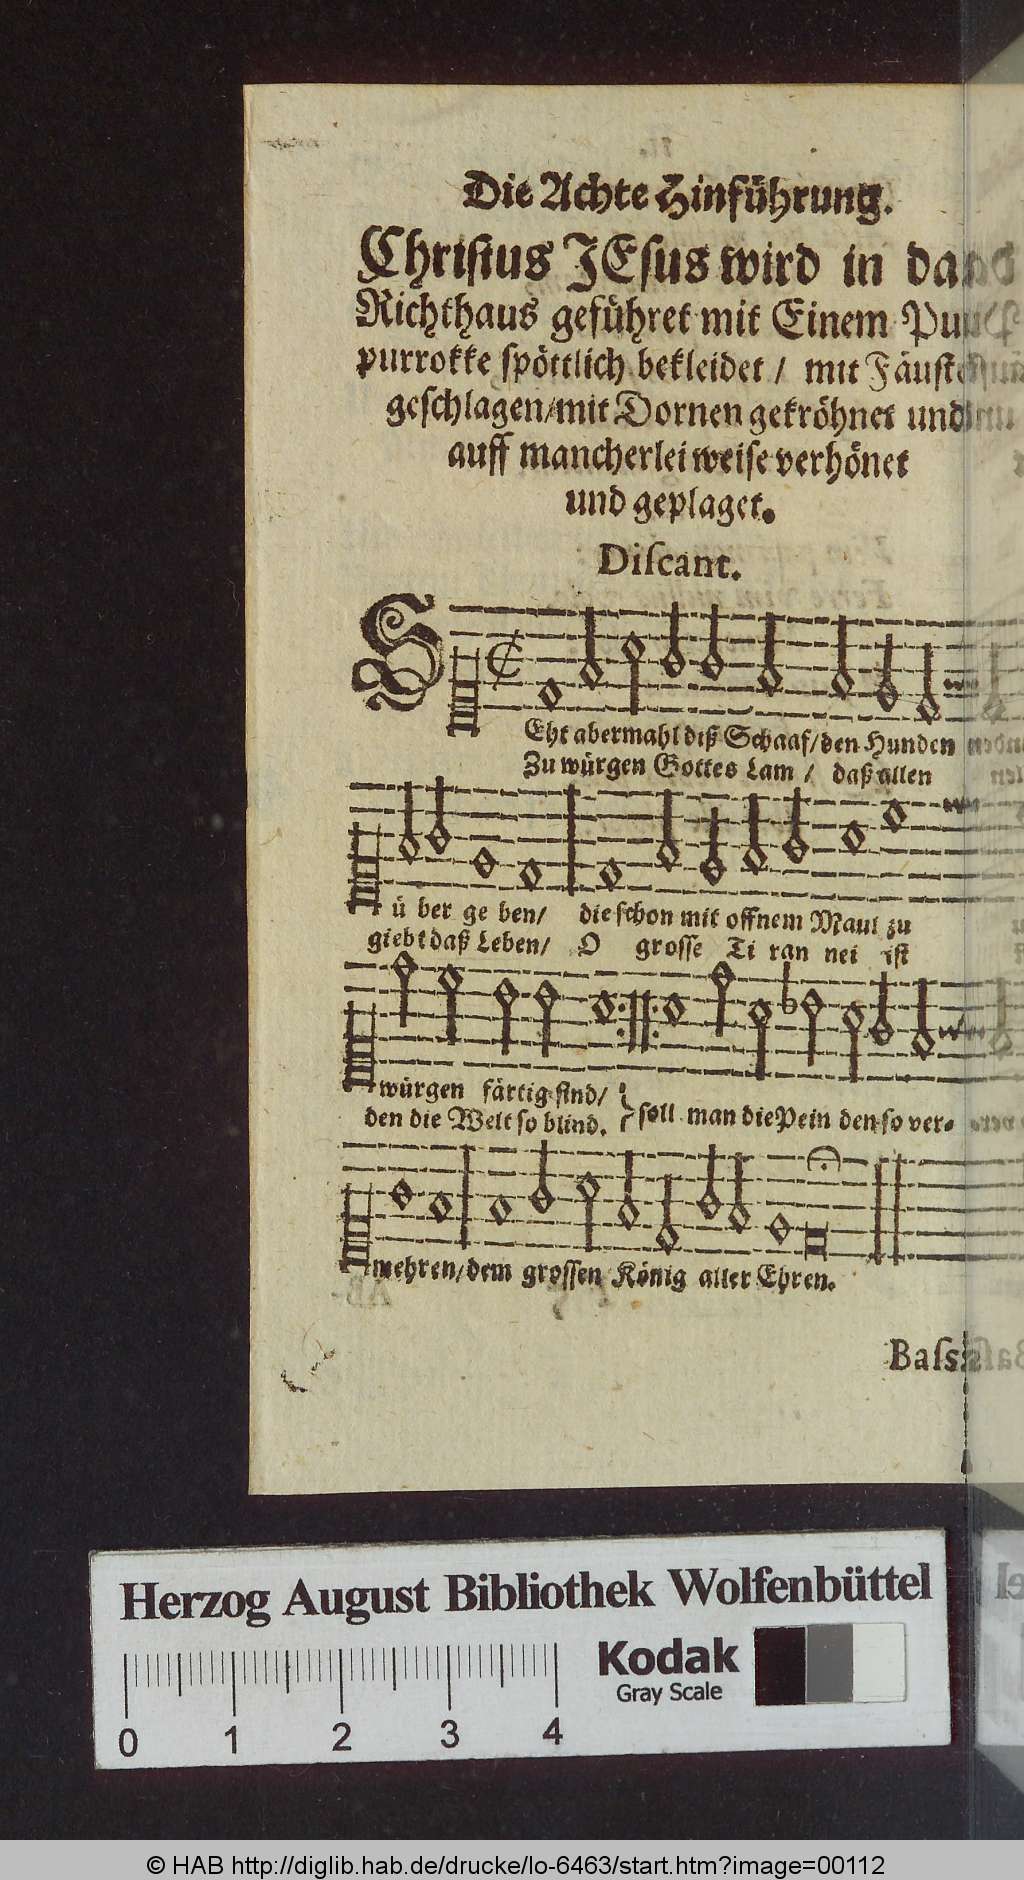 Die Achte Hinführung.
Christus JEsus wird in das
Richthaus geführet mit Einem Pur
purrokke spöttlich bekleidet / mit Fäusten
geschlagen/mit Dornen gekröhnet und
auff mancherlei weise verhönet
und geplaget.
Discant.
S
Eht abermahl diß Schaaf/den Hunden
Zu würgen Gottes Lam / daß allen
ü ber ge ben/ die schon mit offnem Maul zu
giebt daß Leben/ O grosse Ti ran nei ist
würgen färtig sind/
den die Welt so blind. soll man die Pein den so ver-
mehren/dem grossen König aller Ehren.
Bass
Herzog August Bibliothek Wolfenbüttel
0 1 2 3 4
Kodak
Gray Scale
© HAB http://diglib.hab.de/drucke/lo-6463/start.htm?image=00112